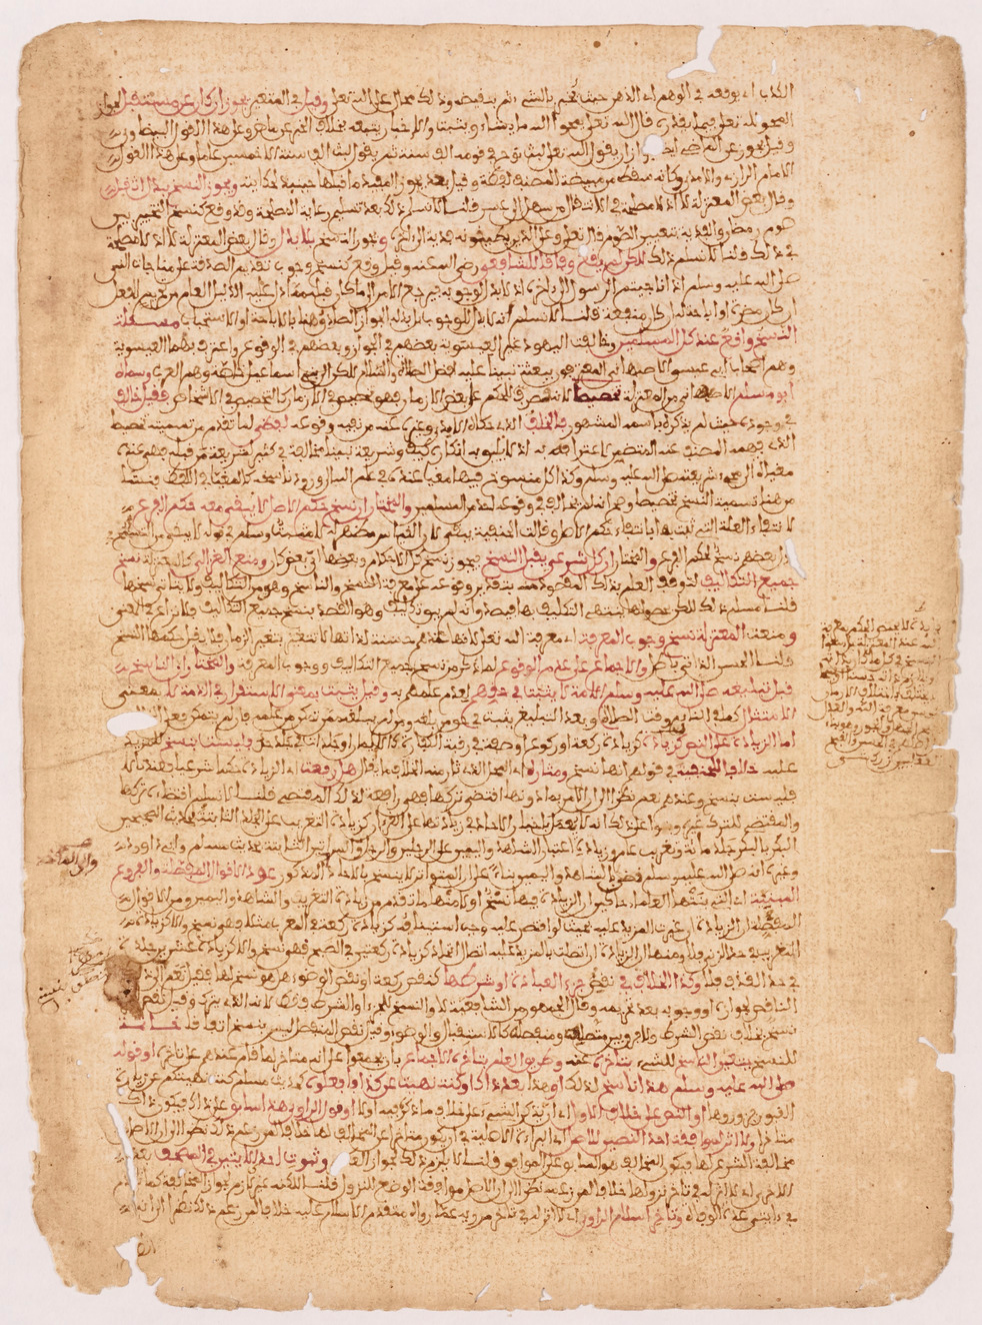 الكذب اي يوقعه في الوهم اي الذهن حيث يخبر بالشيء ثم بنقيضه وذلك محال على الله تعلى وقيل في المتغير يجوز ان كان عن مستقبل لجواز
المحو لله تعلى فيما يقدره قال الله تعلى يمحوا الله ما يشاء ويثبت والاخبار يتبعه بخلاف الخبر عن ماض وعلى هذا القول البيضاوي
وقيل يجوز عن الماضي ايضا لجواز ان يقول الله تعلى لبث نوح في قومه الف سنة ثم يقول لبث الف سنة الا خمسين عاما وعلى هذا القول
الامام الرازي والامدي وكانه سقط من مبيضة المصنف لفظة وقيل بعد يجوز المفيدة ما قبلها حينئذ لحكايته ويجوز النسخ ببدل اثقل
وقال بعض المعتزلة لا اذ لا مصلحة في الانتقال من سهل الى عسر قلنا لا نسلم ذلك بعد تسليم رعاية المصلحة وقد وقع كنسخ التخيير بين
صوم رمضان والفدية بتعيين الصوم قال تعلى وعلى الذين يطيقونه فدية الى اخره ويجوز النسخ بلا بدل وقال بعض المعتزلة لا اذ لا مصلحة
في ذلك قلنا لا نسلم ذلك لكن لم يقع وفاقا للشافعي رضي الله عنه وقيل وقع كنسخ وجوب تقديم الصدقة على مناجات النبي
صلى الله عليه وسلم اذا ناجيتم الرسول الى اخره اذ لا بدل لوجوبه فيرجع الامر الى ما كان قبله مما دل عليه الدليل العام من تحريم للفعل
ان كان مضرة او اباحة له ان كان منفعة قلنا لا نسلم انه لا بدل للوجوب بل بدله الجواز الصادق هنا بالاباحة او الاستحباب مسئلة
النسخ واقع عند كل المسلمين وخالفت اليهود غير العيسوية بعضهم في الجواز وبعضهم في الوقوع واعترف بهما العيسوية
وهم اصحاب ابي عيسى الاصفهاني المعترفون ببعثة نبينا عليه افضل الصلاة والسلام لكن الى بني اسماعيل خاصة وهم العرب وسماه
ابو مسلم الاصفهاني من المعتزلة تخصيصا لانه قصر للحكم على بعض الازمان فهو تخصيص في الازمان كالتخصيص في الاشخاص فقيل خالف
في وجوده حيث لم يذكره باسمه المشهور فالخلف الذي حكاه الامدي وغيره عنه من نفيه وقوعه لفظي لما تقدم من تسميته تخصيصا
الذي فهمه المصنف عنه المتضمن لاعترافه به اذ لا يليق به انكاره كيف وشريعة نبينا مخالفة في كثير لشريعة من قبله فهي عنده
مغياة الى مجيء شريعته صلى الله عليه وسلم وكذا كل منسوخ فيها مغيا عنده في علم الله الى ورود ناسخه كالمغيا في اللفظ فنشا
من هنا تسمية النسخ تخصيصا وصح انه لم يخالف في وقوعه احد من المسلمين والمختار ان نسخ حكم الاصل لا يبقى معه حكم الفرع
لانتفاء العلة التي ثبت بها بانتفاء حكم الاصل وقالت الحنفية يبقى لان القياس مظهر له لا مثبت وسلم في قوله لا يبقى من التسمح
ان بعضهم نسخ لحكم الفرع والمختار ان كل شرعي يقبل النسخ فيجوز نسخ كل الاحكام وبعضها اي بعض كان ومنع الغزالي كالمعتزلة نسخ
جميع التكاليف لتوقف العلم بذلك المقصود منه بتقدير وقوعه على معرفة النسخ والناسخ وهي من التكاليف ولا يتاتى نسخها
قلنا مسلم ذلك لكن بحصولها ينتهي التكليف بها فيصدق انه لم يبق تكليف وهو القصد بنسخ جميع التكاليف فلا نزاع في المعنى
ومنعت المعتزلة نسخ وجوب المعرفة اي معرفة الله تعلى لانها عندهم حسنة لذاتها لا تتغير بتغير الزمان فلا يقبل حكمها النسخ
قلنا الحسن الذاتي باطل والاجماع على عدم الوقوع لما ذكر من نسخ جميع التكاليف ووجوب المعرفة والمختار ان الناسخ
قبل تبليغه صلى الله عليه وسلم الامة لا يثبت في حقهم لعدم علمهم به وقيل يثبت بمعنى الاستقرار في الذمة لا بمعنى
الامتثال كما في النائم وقت الصلاة وبعد التبليغ يثبت في حق من بلغه ومن لم يبلغه ممن تمكن من علمه فان لم يتمكن فعلى الخلاف
اما الزيادة على النص كزيادة ركعة او ركوع او صفة في رقبة الكفارة كالايمان او جلدات في جلد حد فليست بنسخ للمزيد
عليه خلافا للحنفية في قولهم انها نسخ ومثاره اي المحل الذي ثار منه الخلاف ما يقال هل رفعت اي الزيادة حكما شرعيا فعندنا لا
فليست بنسخ وعندهم نعم نظرا الى ان الامر بما دونها اقتضى تركها فهي رافعة لذلك المقتضى قلنا لا نسلم اقتضاء تركها
والمقتضي للترك غيره وبنوا على ذلك انه لا يعمل باخبار الاحاد في زيادتها على القران كزيادة التغريب على الجلد الثابتة بحديث الصحيحين
البكر بالبكر جلد مائة وتغريب عام وزيادة اعتبار الشاهد واليمين على الرجلين والرجل والمراتين الثابتة بحديث مسلم وابي داود
وغيره انه صلى الله عليه وسلم قضى بالشاهد واليمين بناء على ان المتواتر لا ينسخ بالاحاد والى المذكور عود الاقوال المفصلة والفروع
المبنية اي التي بينها العلماء حاكين ان الزيادة فيها نسخ او لا منها ما تقدم من زيادة التغريب والشاهد واليمين ومن الاقوال
المفصلة ان الزيادة ان غيرت المزيد عليه بحيث لو اقتصر عليه وجب استينافه كزيادة ركعة في المغرب مثلا فهي نسخ والا كزيادة
التغريب في حد الزنى فلا ومنها ان الزيادة ان اتصلت بالمزيد عليه اتصال اتحاد كزيادة ركعتين في الصبح فهي نسخ والا كزيادة عشرين جلدة
في حد القذف فلا وكذا الخلاف في نقص جزء العبادة او شرطها كنقص ركعة او نقص الوضوء هل هو نسخ لها فقيل نعم الى ذلك
الناقص لجوازه او وجوبه بعد تحريمه وقال الجمهور من الشافعية لا والنسخ للجزء او الشرط فقط لانه الذي يترك وقيل نقص الجزء
نسخ بخلاف نقص الشرط ولا فرق بين متصله ومنفصله كالاستقبال والوضوء وقيل نقص المنفصل ليس بنسخ اتفاقا خاتمة
للنسخ يتعين الناسخ للشيء بتاخره عنه وطريق العلم بتاخره الاجماع بان يجمعوا على انه متاخر لما قام عندهم على تاخره او قوله
صلى الله عليه وسلم هذا ناسخ لذاك او هذا بعد ذاك او كنت نهيت عن كذا فافعلوه كحديث مسلم كنت نهيتكم عن زيارة
القبور فزوروها او النص على خلاف الاول اي ان يذكر الشيء على خلاف ما ذكر فيه اولا او قول الراوي هذا سابق على ذاك فيكون ذاك
متاخرا ولا اثر لموافقة احد النصين للاصل اي البراءة الاصلية في ان يكون متاخرا عن المخالف لها خلافا لمن زعم ذلك نظرا الى ان الاصل
مخالفة الشرع لها فيكون المخالف هو السابق على الموافق قلنا لا يلزم ذلك لجواز العكس وثبوت احدى الايتين في المصحف بعد
الاخرى اي لا اثر له في تاخر نزولها خلافا لمن زعمه نظرا الى ان الاصل موافقة الوضع للنزول قلنا لكنه غير لازم لجواز المخالفة كما تقدم
في اية عدة الوفاة وتاخر اسلام الراوي اي لا اثر له في تاخر مرويه عما رواه متقدم الاسلام عليه خلافا لمن زعم ذلك نظرا الى انه